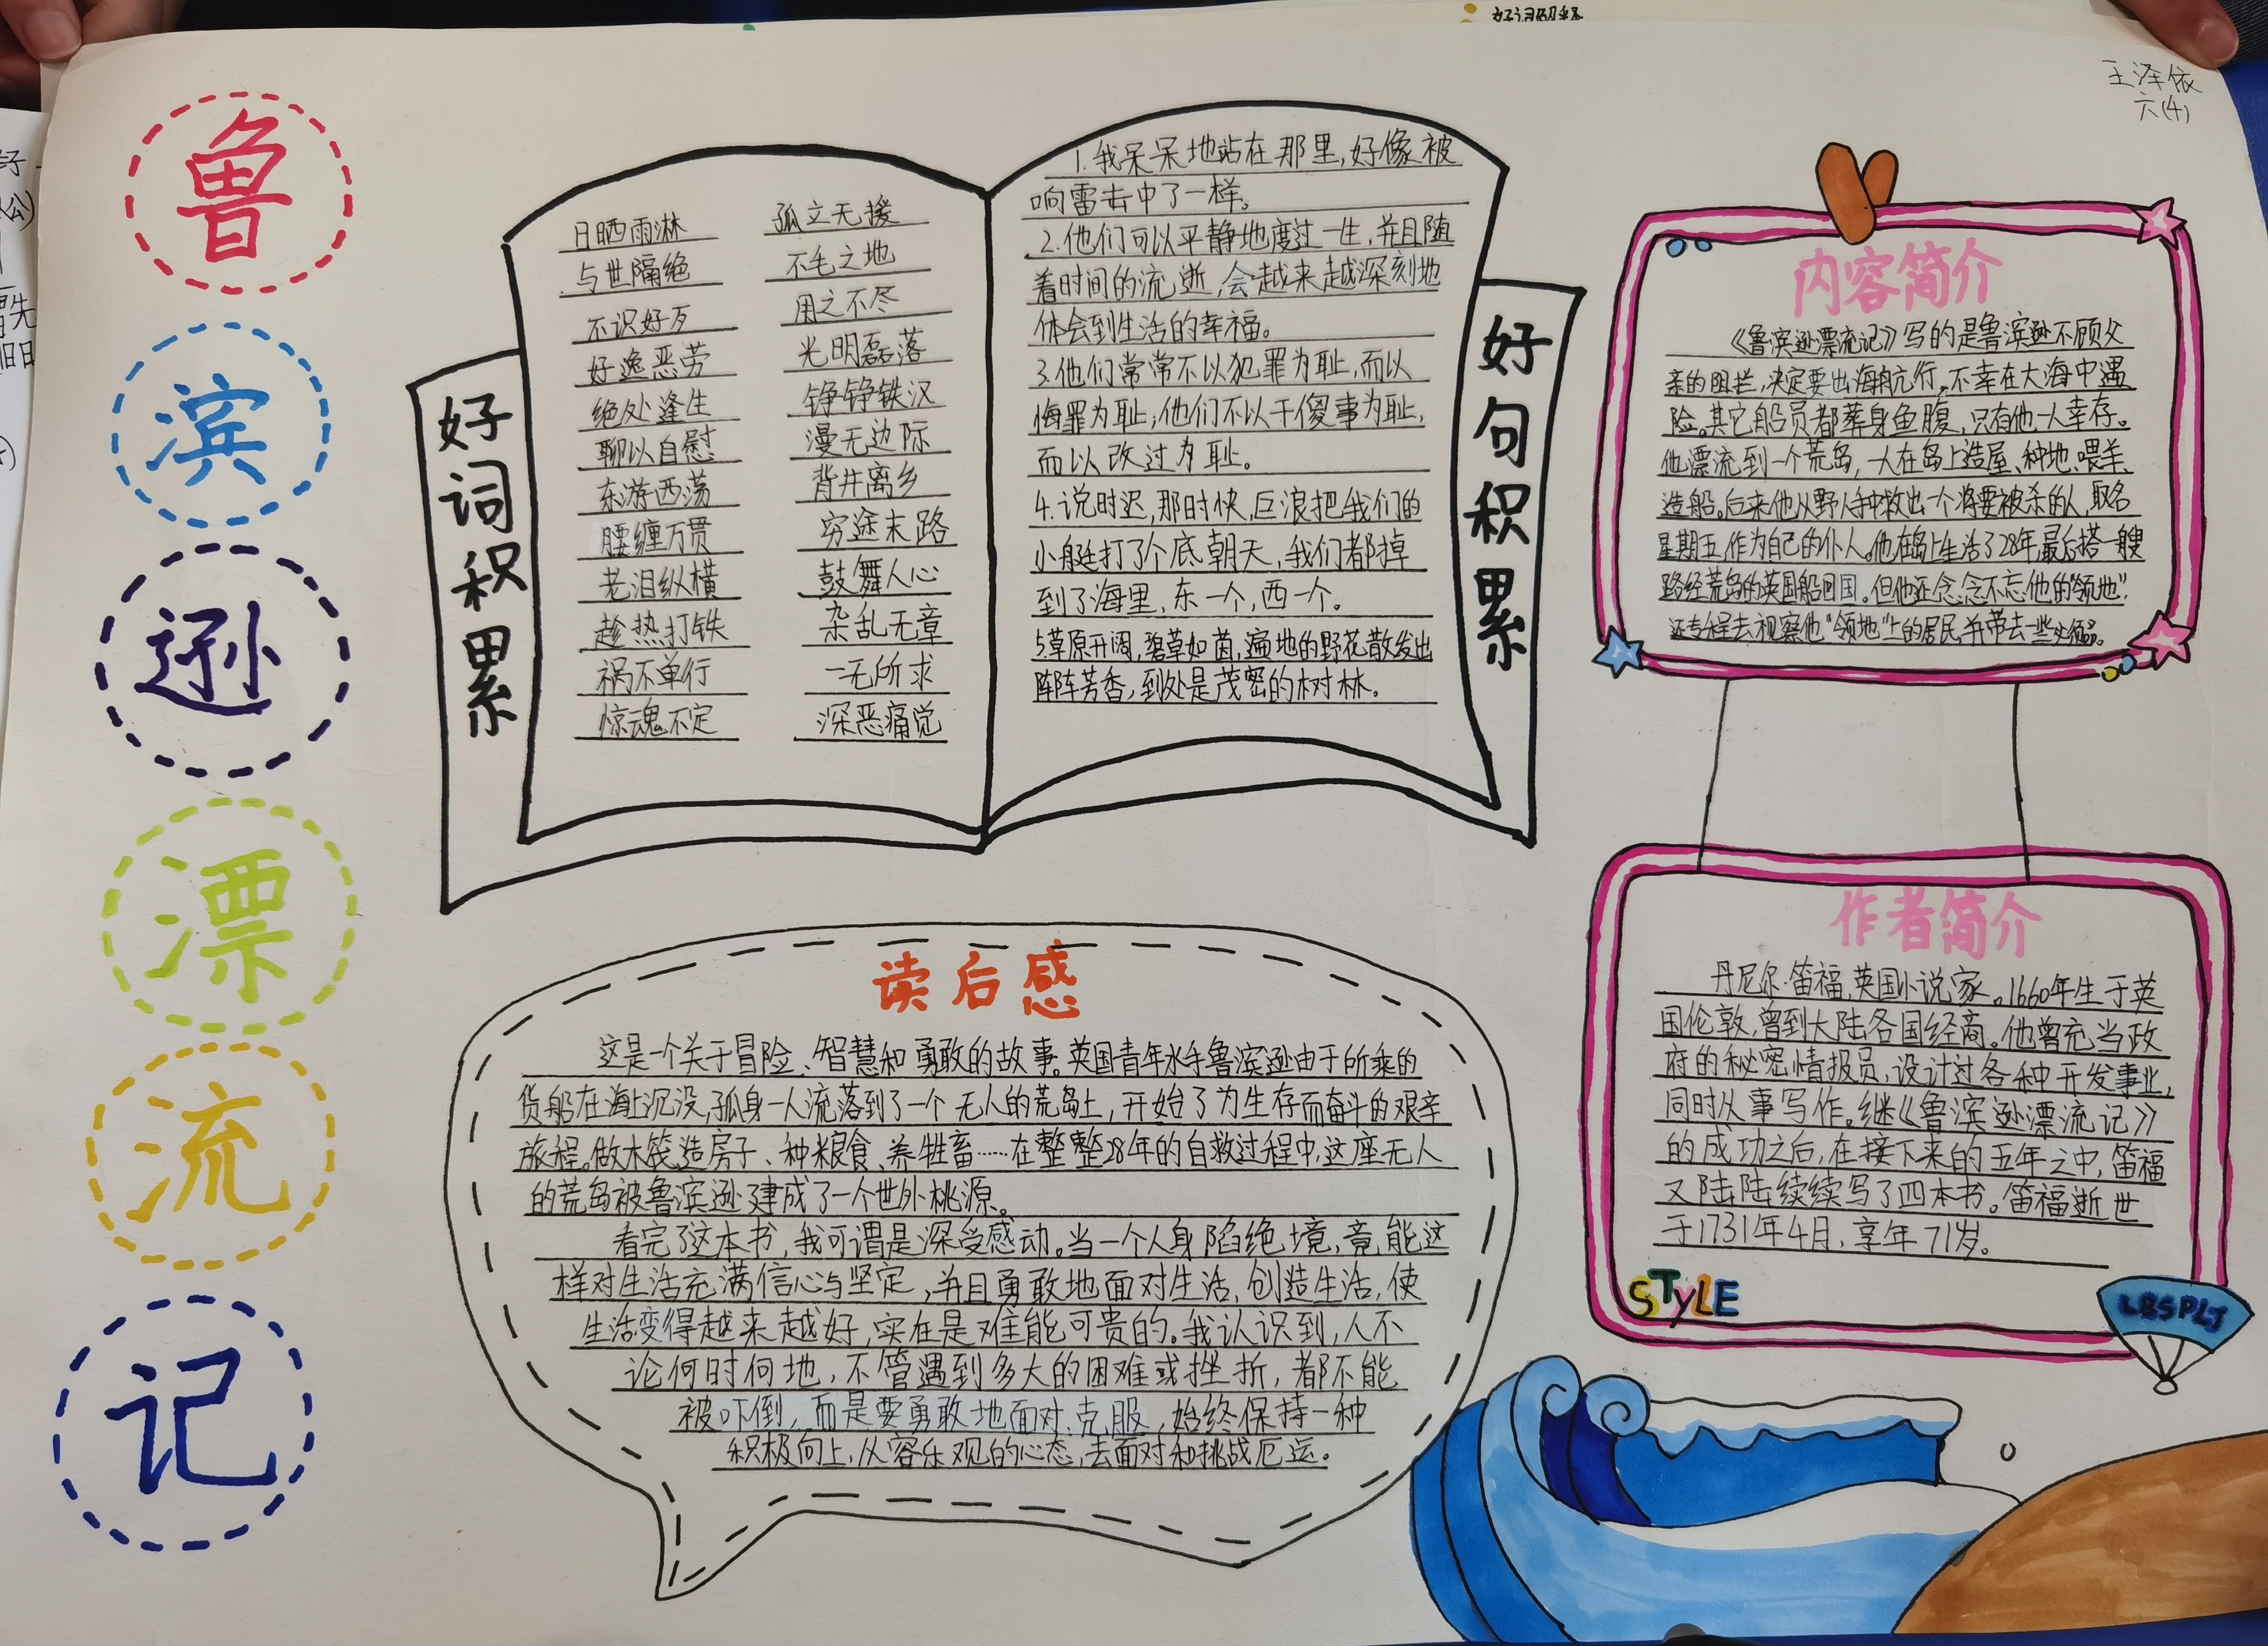 王泽依
六(4)
鲁
滨
逊
漂
流
记
好词积累
日晒雨淋
与世隔绝
不识好歹
好逸恶劳
绝处逢生
聊以自慰
东游西荡
腰缠万贯
老泪纵横
趁热打铁
祸不单行
惊魂不定
孤立无援
不毛之地
用之不尽
光明磊落
铮铮铁汉
漫无边际
背井离乡
穷途末路
鼓舞人心
杂乱无章
一无所求
深恶痛觉
好句积累
1.我呆呆地站在那里,好像被
响雷击中了一样。
2.他们可以平静地度过一生,并且随
着时间的流逝,会越来越深刻地
体会到生活的幸福。
3.他们常常不以犯罪为耻,而以
悔罪为耻;他们不以干傻事为耻,
而以改过为耻。
4.说时迟,那时快,巨浪把我们的
小艇打了个底朝天,我们都掉
到了海里,东一个,西一个。
5草原开阔,碧草如茵,遍地的野花散发出
阵阵芳香,到处是茂密的树林。
内容简介
《鲁滨逊漂流记》写的是鲁滨逊不顾父
亲的阻拦,决定要出海航行。不幸在大海中遇
险。其它船员都葬身鱼腹,只有他一人幸存。
他漂流到一个荒岛,一人在岛上造屋、种地、喂羊、
造船。后来他从野人手中救出一个将要被杀的人,取名
星期五,作为自己的仆人。他在岛上生活了28年,最后搭一艘
路经荒岛的英国船回国。但他还念念不忘他的“领地”
还专程去视察他“领地”上的居民,并带去一些必须品。
作者简介
丹尼尔·笛福,英国小说家。1660年生于英
国伦敦,曾到大陆各国经商。他曾充当政
府的秘密情报员,设计过各种开发事业,
同时从事写作。继《鲁滨逊漂流记》
的成功之后,在接下来的五年之中,笛福
又陆陆续续写了四本书。笛福逝世
于1731年4月,享年71岁。
STyLE
LBSPLJ
读后感
这是一个关于冒险、智慧和勇敢的故事。英国青年水手鲁滨逊由于所乘的
货船在海上沉没,孤身一人流落到了一个无人的荒岛上,开始了为生存而奋斗的艰辛
旅程。做木筏、造房子、种粮食、养牲畜……在整整28年的自救过程中,这座无人
的荒岛被鲁滨逊建成了一个世外桃源。
看完了这本书,我可谓是深受感动。当一个人身陷绝境,竟能这
样对生活充满信心与坚定,并且勇敢地面对生活,创造生活,使
生活变得越来越好,实在是难能可贵的。我认识到,人不
论何时何地,不管遇到多大的困难或挫折,都不能
被吓倒,而是要勇敢地面对、克服,始终保持一种
积极向上,从容乐观的心态,去面对和挑战厄运。